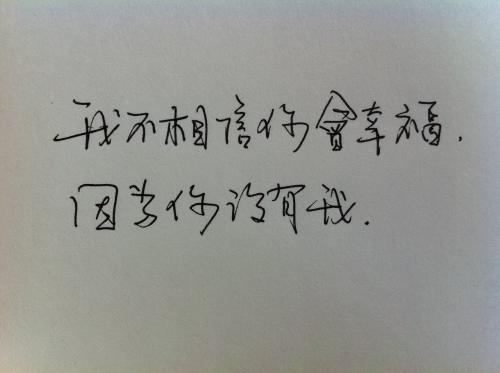 我不相信你會幸福.
因为你没有我.